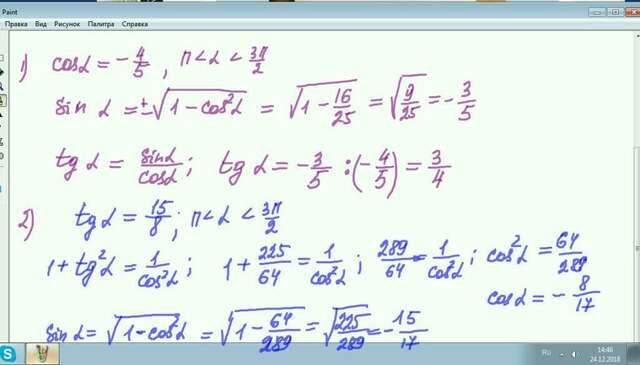 Paint
Правка Вид Рисунок Палитра Справка
1) cosα = -4/5, π<α<3π/2
sin α = ±√(1-cos²α) = √(1-16/25) = √(9/25) = -3/5
tg α = sinα/cosα; tg α = -3/5 : (-4/5) = 3/4
2) tg α = 15/8; π<α<3π/2
1+tg²α = 1/cos²α; 1+225/64 = 1/cos²α; 289/64 = 1/cos²α; cos²α = 64/289
cosα = -8/17
sin α = √(1-cos²α) = √(1-64/289) = √(225/289) = -15/17
RU 14:46
24.12.2018